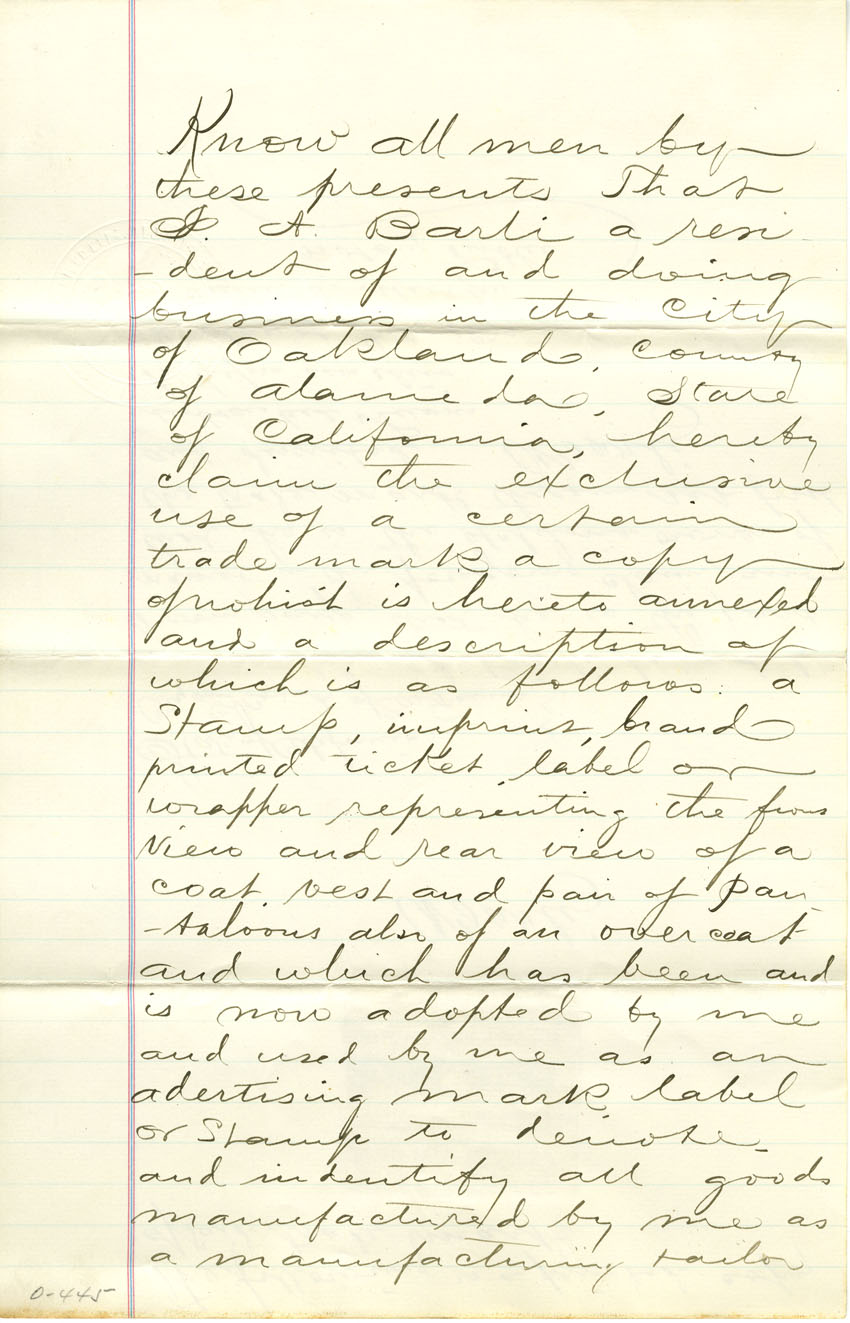 Know all men by
these presents That
A. Barli a resi
-dent of and doing
business in the City
of Oakland, county
of Alameda, State
of California, hereby
claim the exclusive
use of a certain
trade mark a copy
of which is hereto annexed
and a description of
which is as follows: a
Stamp, imprint, brand
printed ticket label or
wrapper representing the front
View and rear view of a
coat, vest and pair of Pan
-taloons also of an over coat
and which has been and
is now adopted by me
and used by me as an
adertising mark label
or Stamp to denote
and indentify all goods
manufactured by me as
a manufacturing tailor
0-445